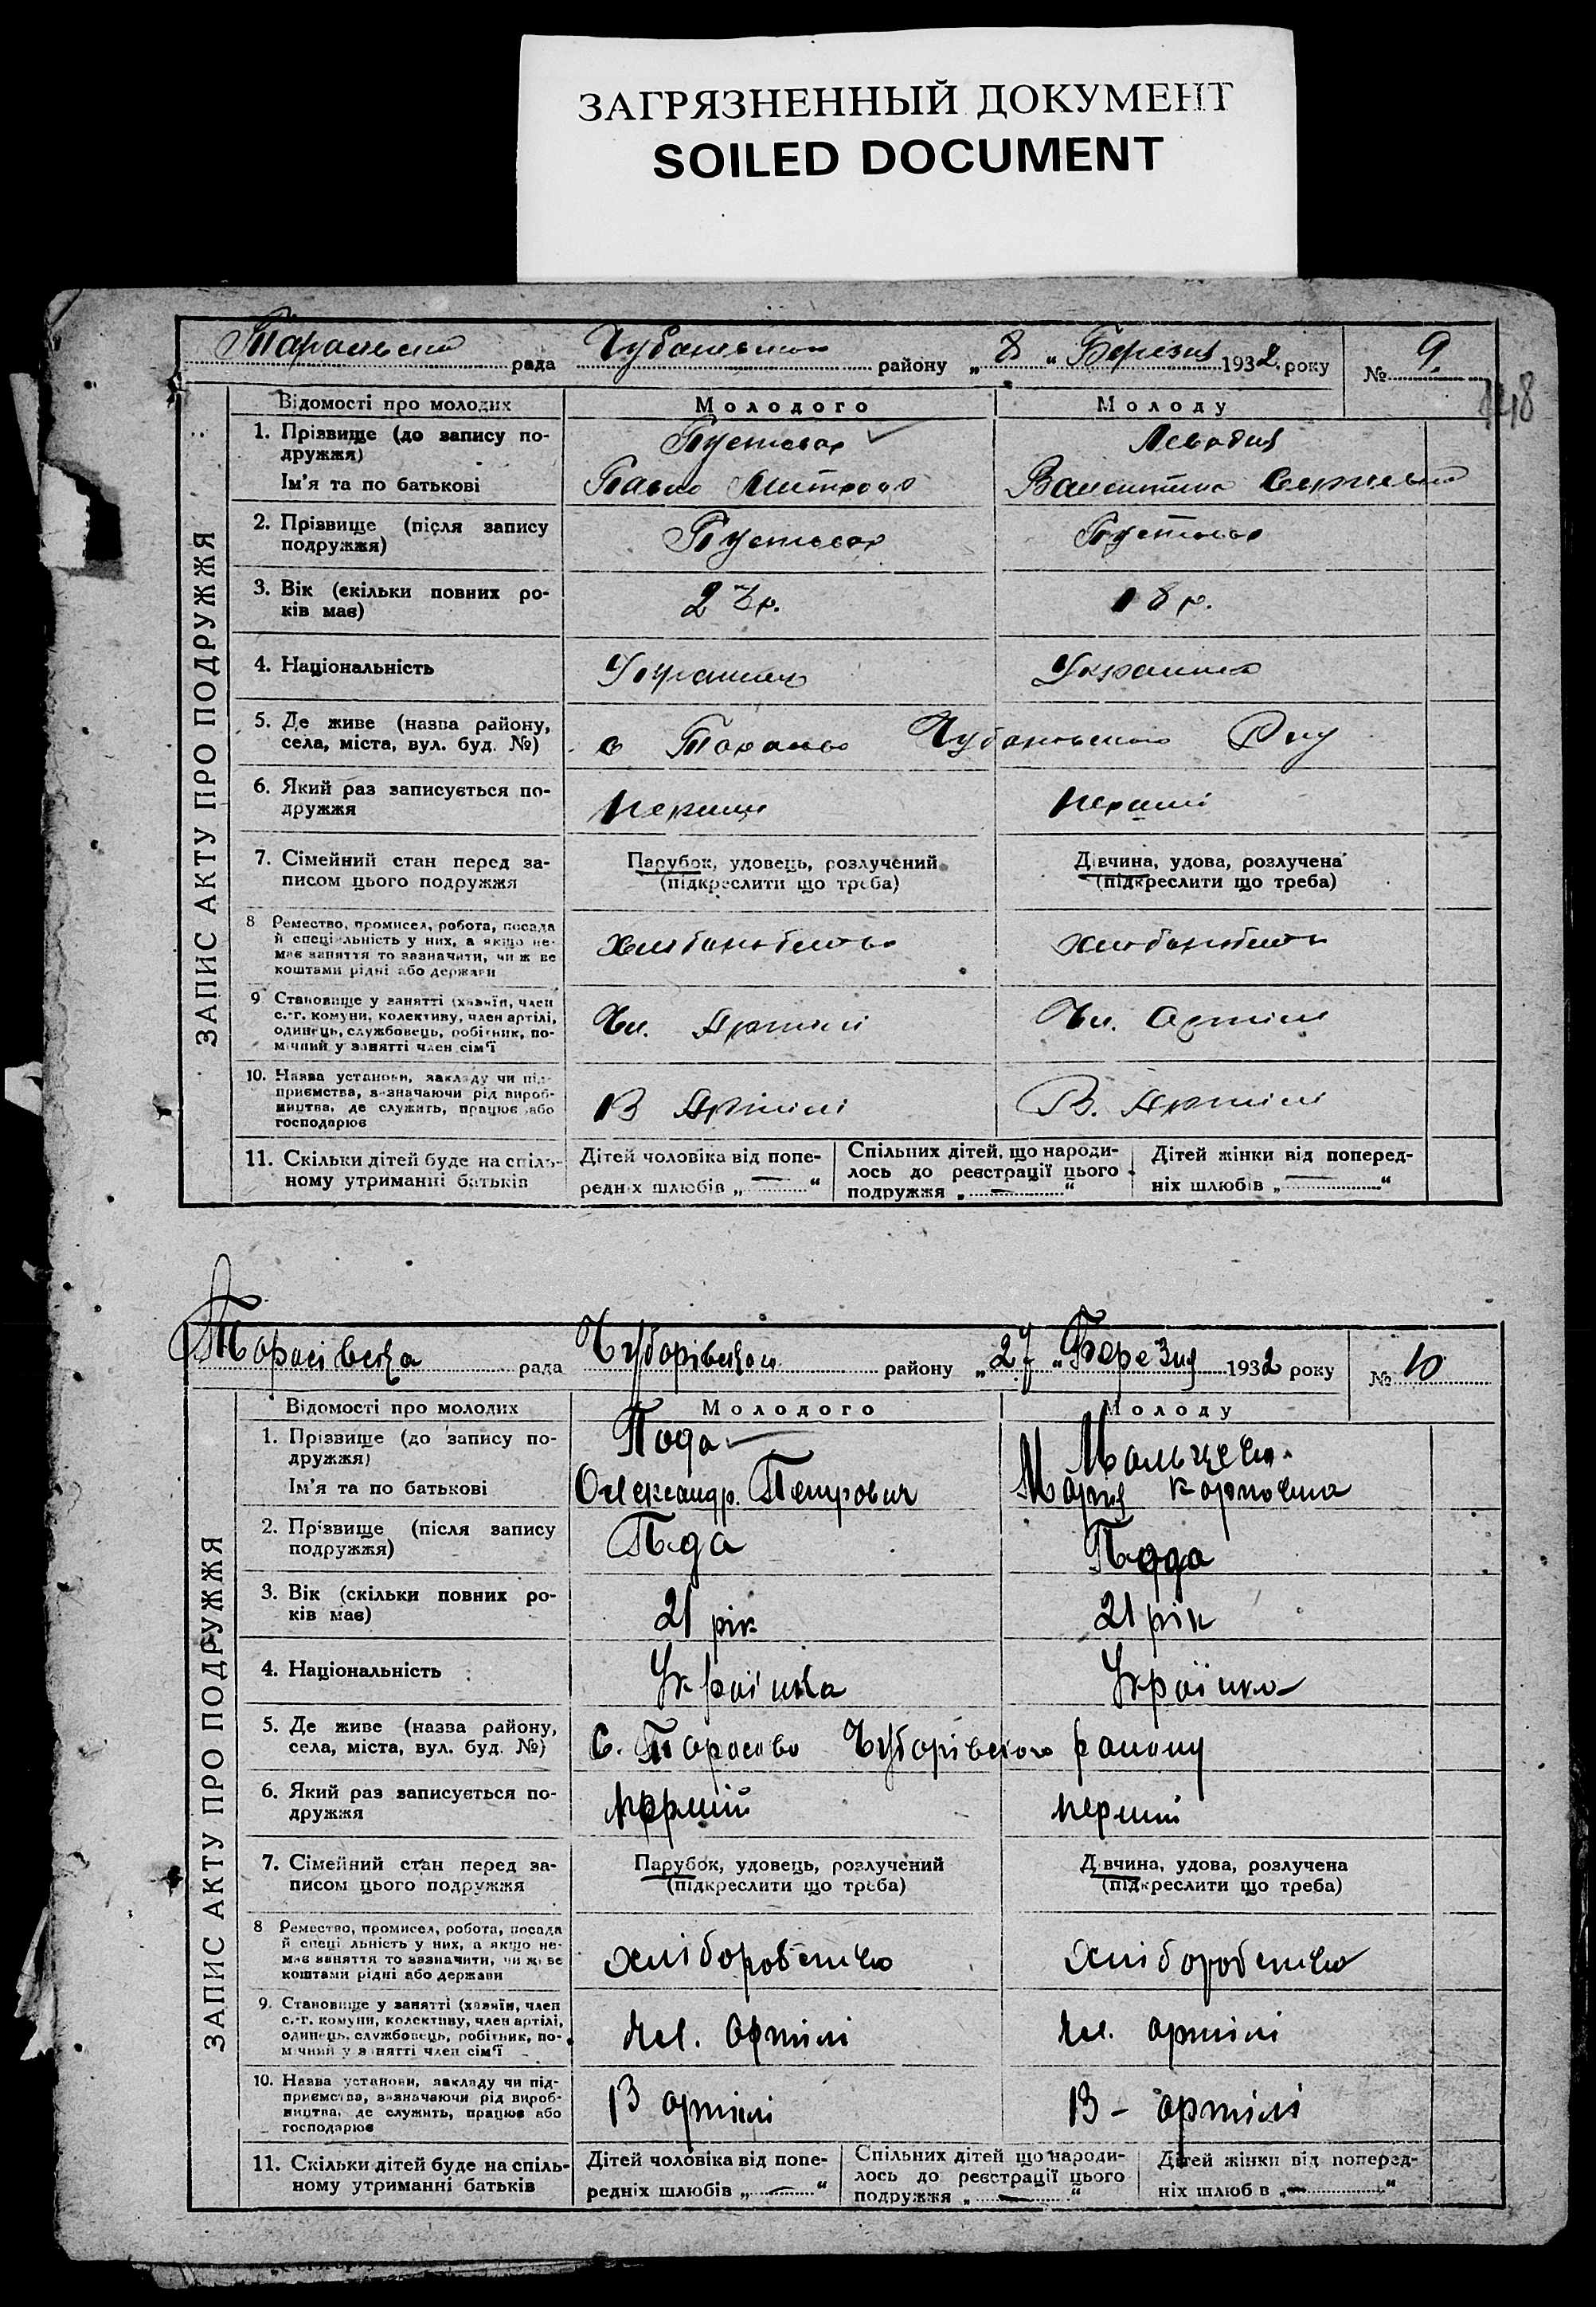 ЗАГРЯЗНЕННЫЙ ДОКУМЕНТ
SOILED DOCUMENT
рада району „ 8 " Березня 1932. року № 9.
148
ЗАПИС АКТУ ПРО ПОДРУЖЖЯ
Відомості про молодих Молодого Молоду
1. Прізвище (до запису по-
дружжя)
Ім'я та по батькові Павло Валентина
2. Прізвище (після запису
подружжя)
3. Вік (скільки повних ро-
ків має) 18 р.
4. Національність
5. Де живе (назва району,
села, міста, вул. буд. №) с
6. Який раз записується по-
дружжя
7. Сімейний стан перед за-
писом цього подружжя
Парубок, удовець, розлучений
(підкреслити що треба)
Дівчина, удова, розлучена
(підкреслити що треба)
8 Ремество, промисел, робота, посада
й спеціяльність у них, а якщо не-
має заняття то зазначити, чи живе
коштами рідні або держави
9 Становище у занятті (хазяїн, член
с.-г. комуни, колективу, член артілі,
одинець, службовець, робітник, по-
мічний у занятті член сім'ї
Чл. Артілі Чл. Артілі
10. Назва установи, закладу чи під-
приємства, зазначаючи рід вироб-
ництва, де служить, працює або
господарює
В Артілі В. Артілі
11. Скільки дітей буде на спіль-
ному утриманні батьків
Дітей чоловіка від попе-
редніх шлюбів „ — “
Спільних дітей, що народи-
лось до реєстрації цього
подружжя „ — “
Дітей жінки від поперед-
ніх шлюбів „ — “
Тарасівська рада Чубарівського району „ 27 " Березня 1932 року № 10
ЗАПИС АКТУ ПРО ПОДРУЖЖЯ
Відомості про молодих Молодого Молоду
1. Прізвище (до запису по-
дружжя) Пода Мальцева
Ім'я та по батькові Олександр. Петрович Марія Карповна
2. Прізвище (після запису
подружжя) Пода Пода
3. Вік (скільки повних ро-
ків має) 21 рік 21 рік
4. Національність Українка
5. Де живе (назва району,
села, міста, вул. буд. №) С. Чубарівського району
6. Який раз записується по-
дружжя перший перший
7. Сімейний стан перед за-
писом цього подружжя
Парубок, удовець, розлучений
(підкреслити що треба)
Дівчина, удова, розлучена
(підкреслити що треба)
8 Ремество, промисел, робота, посада
й спеціяльність у них, а якщо не-
має заняття то зазначити, чи живе
коштами рідні або держави
хліборобство хліборобство
9. Становище у занятті (хазяїн, член
с.-г. комуни, колективу, член артілі,
одинець, службовець, робітник, по-
мічний у занятті член сім'ї
чл. артілі чл. артілі
10. Назва установи, закладу чи під-
приємства, зазначаючи рід вироб-
ництва, де служить, працює або
господарює
В артілі В – артілі
11. Скільки дітей буде на спіль-
ному утриманні батьків
Дітей чоловіка від попе-
редніх шлюбів „ — “
Спільних дітей що народи-
лось до реєстрації цього
подружжя „ — “
Дітей жінки від поперед-
ніх шлюбів „ — “